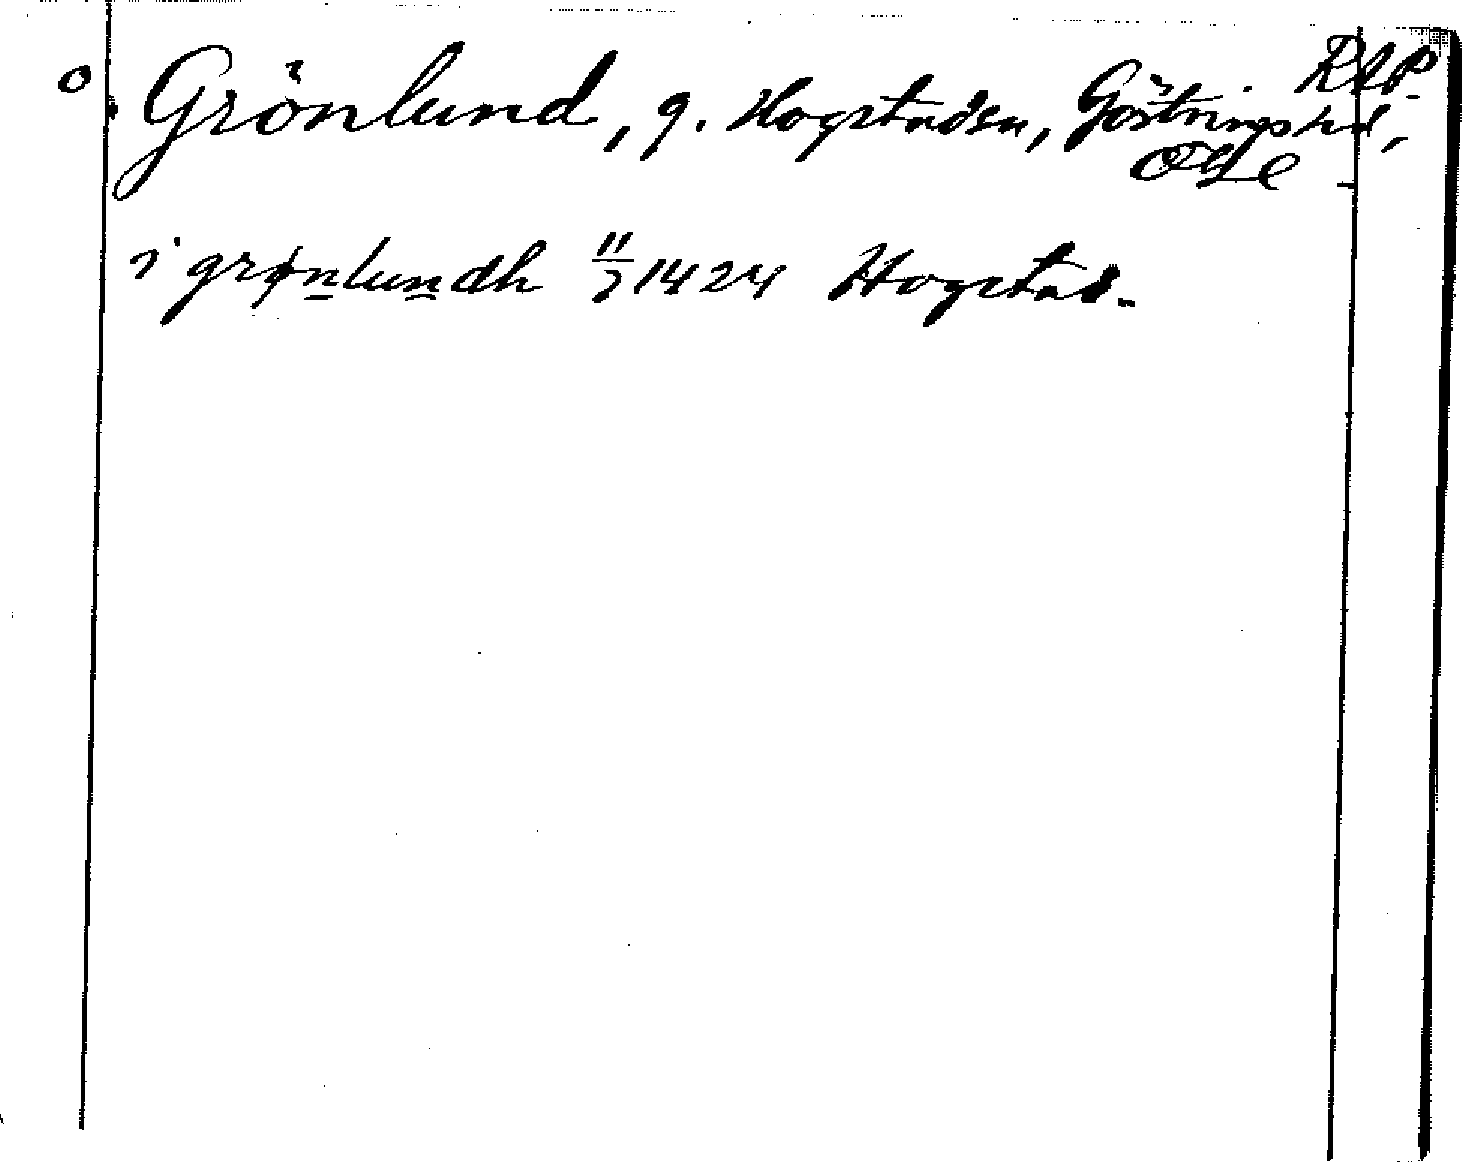 RAP.
o Grönlund, g. Hogstadsn, Göstringshd,
Ögl
i grønlundh 11/7 1424 Hogstad.